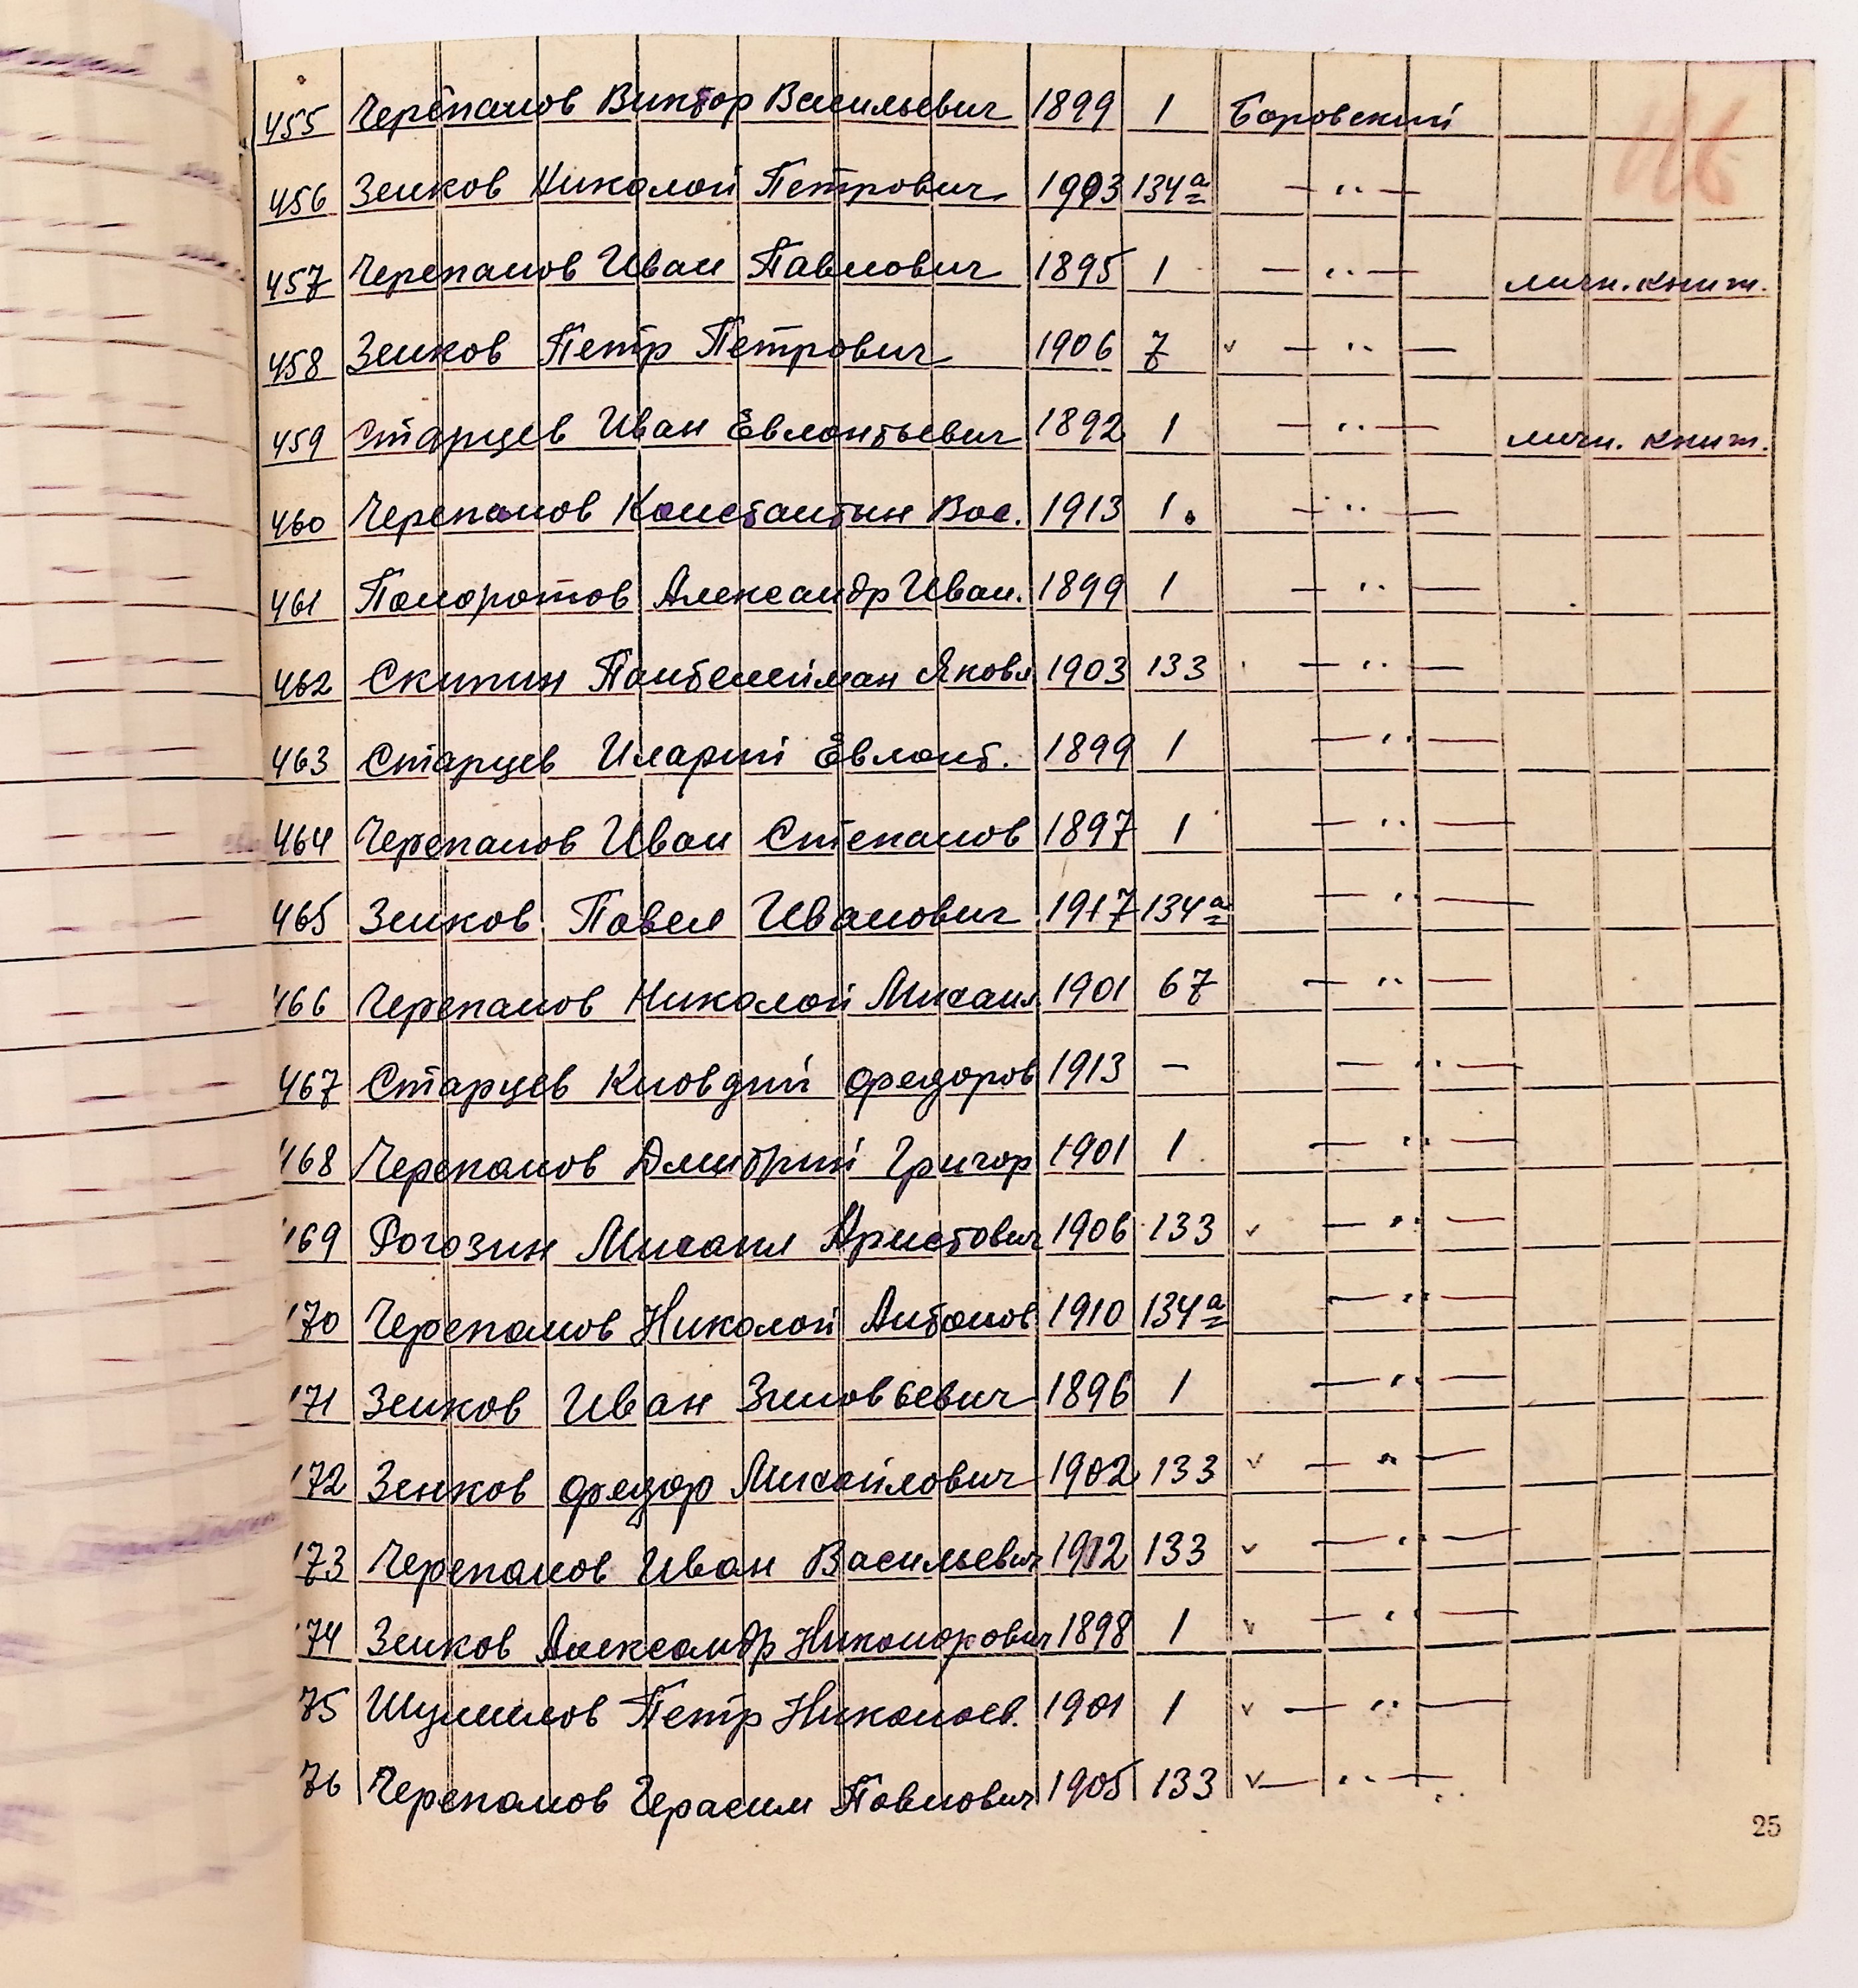 455 Черепанов Виктор Васильевич 1899 1 Боровский
456 Зенков Николай Петрович 1903 134а — „ —
457 Черепанов Иван Павлович 1895 1 — „ — личн. книж.
458 Зенков Петр Петрович 1906 7 v — „ —
459 Старцев Иван Евлонтьевич 1892 1 — „ — личн. книж.
460 Черепанов Константин Вас. 1913 1 — „ —
461 Поморотов Александр Иван. 1899 1 — „ —
462 Скипин Пантелейман Яковл 1903 133 — „ —
463 Старцев Иларий Евлонт. 1899 1 — „ —
464 Черепанов Иван Степанов 1897 1 — „ —
465 Зенков Павел Иванович 1917 134а — „ —
466 Черепанов Николай Михаил 1901 67 — „ —
467 Старцев Кловдий Федоров 1913 — — „ —
468 Черепанов Дмитрий Григор 1901 1 — „ —
469 Рогозин Михаил Аристович 1906 133 v — „ —
70 Черепанов Николай Антонов 1910 134а — „ —
71 Зенков Иван Зиновьевич 1896 1 — „ —
72 Зенков Федор Михайлович 1902 133 v — „ —
73 Черепанов Иван Васильевич 1912 133 v — „ —
74 Зенков Александр Никонорович 1898 1 v — „ —
75 Шумилов Петр Николаев. 1901 1 v — „ —
76 Черепанов Герасим Павлович 1905 133 v — „ —
25